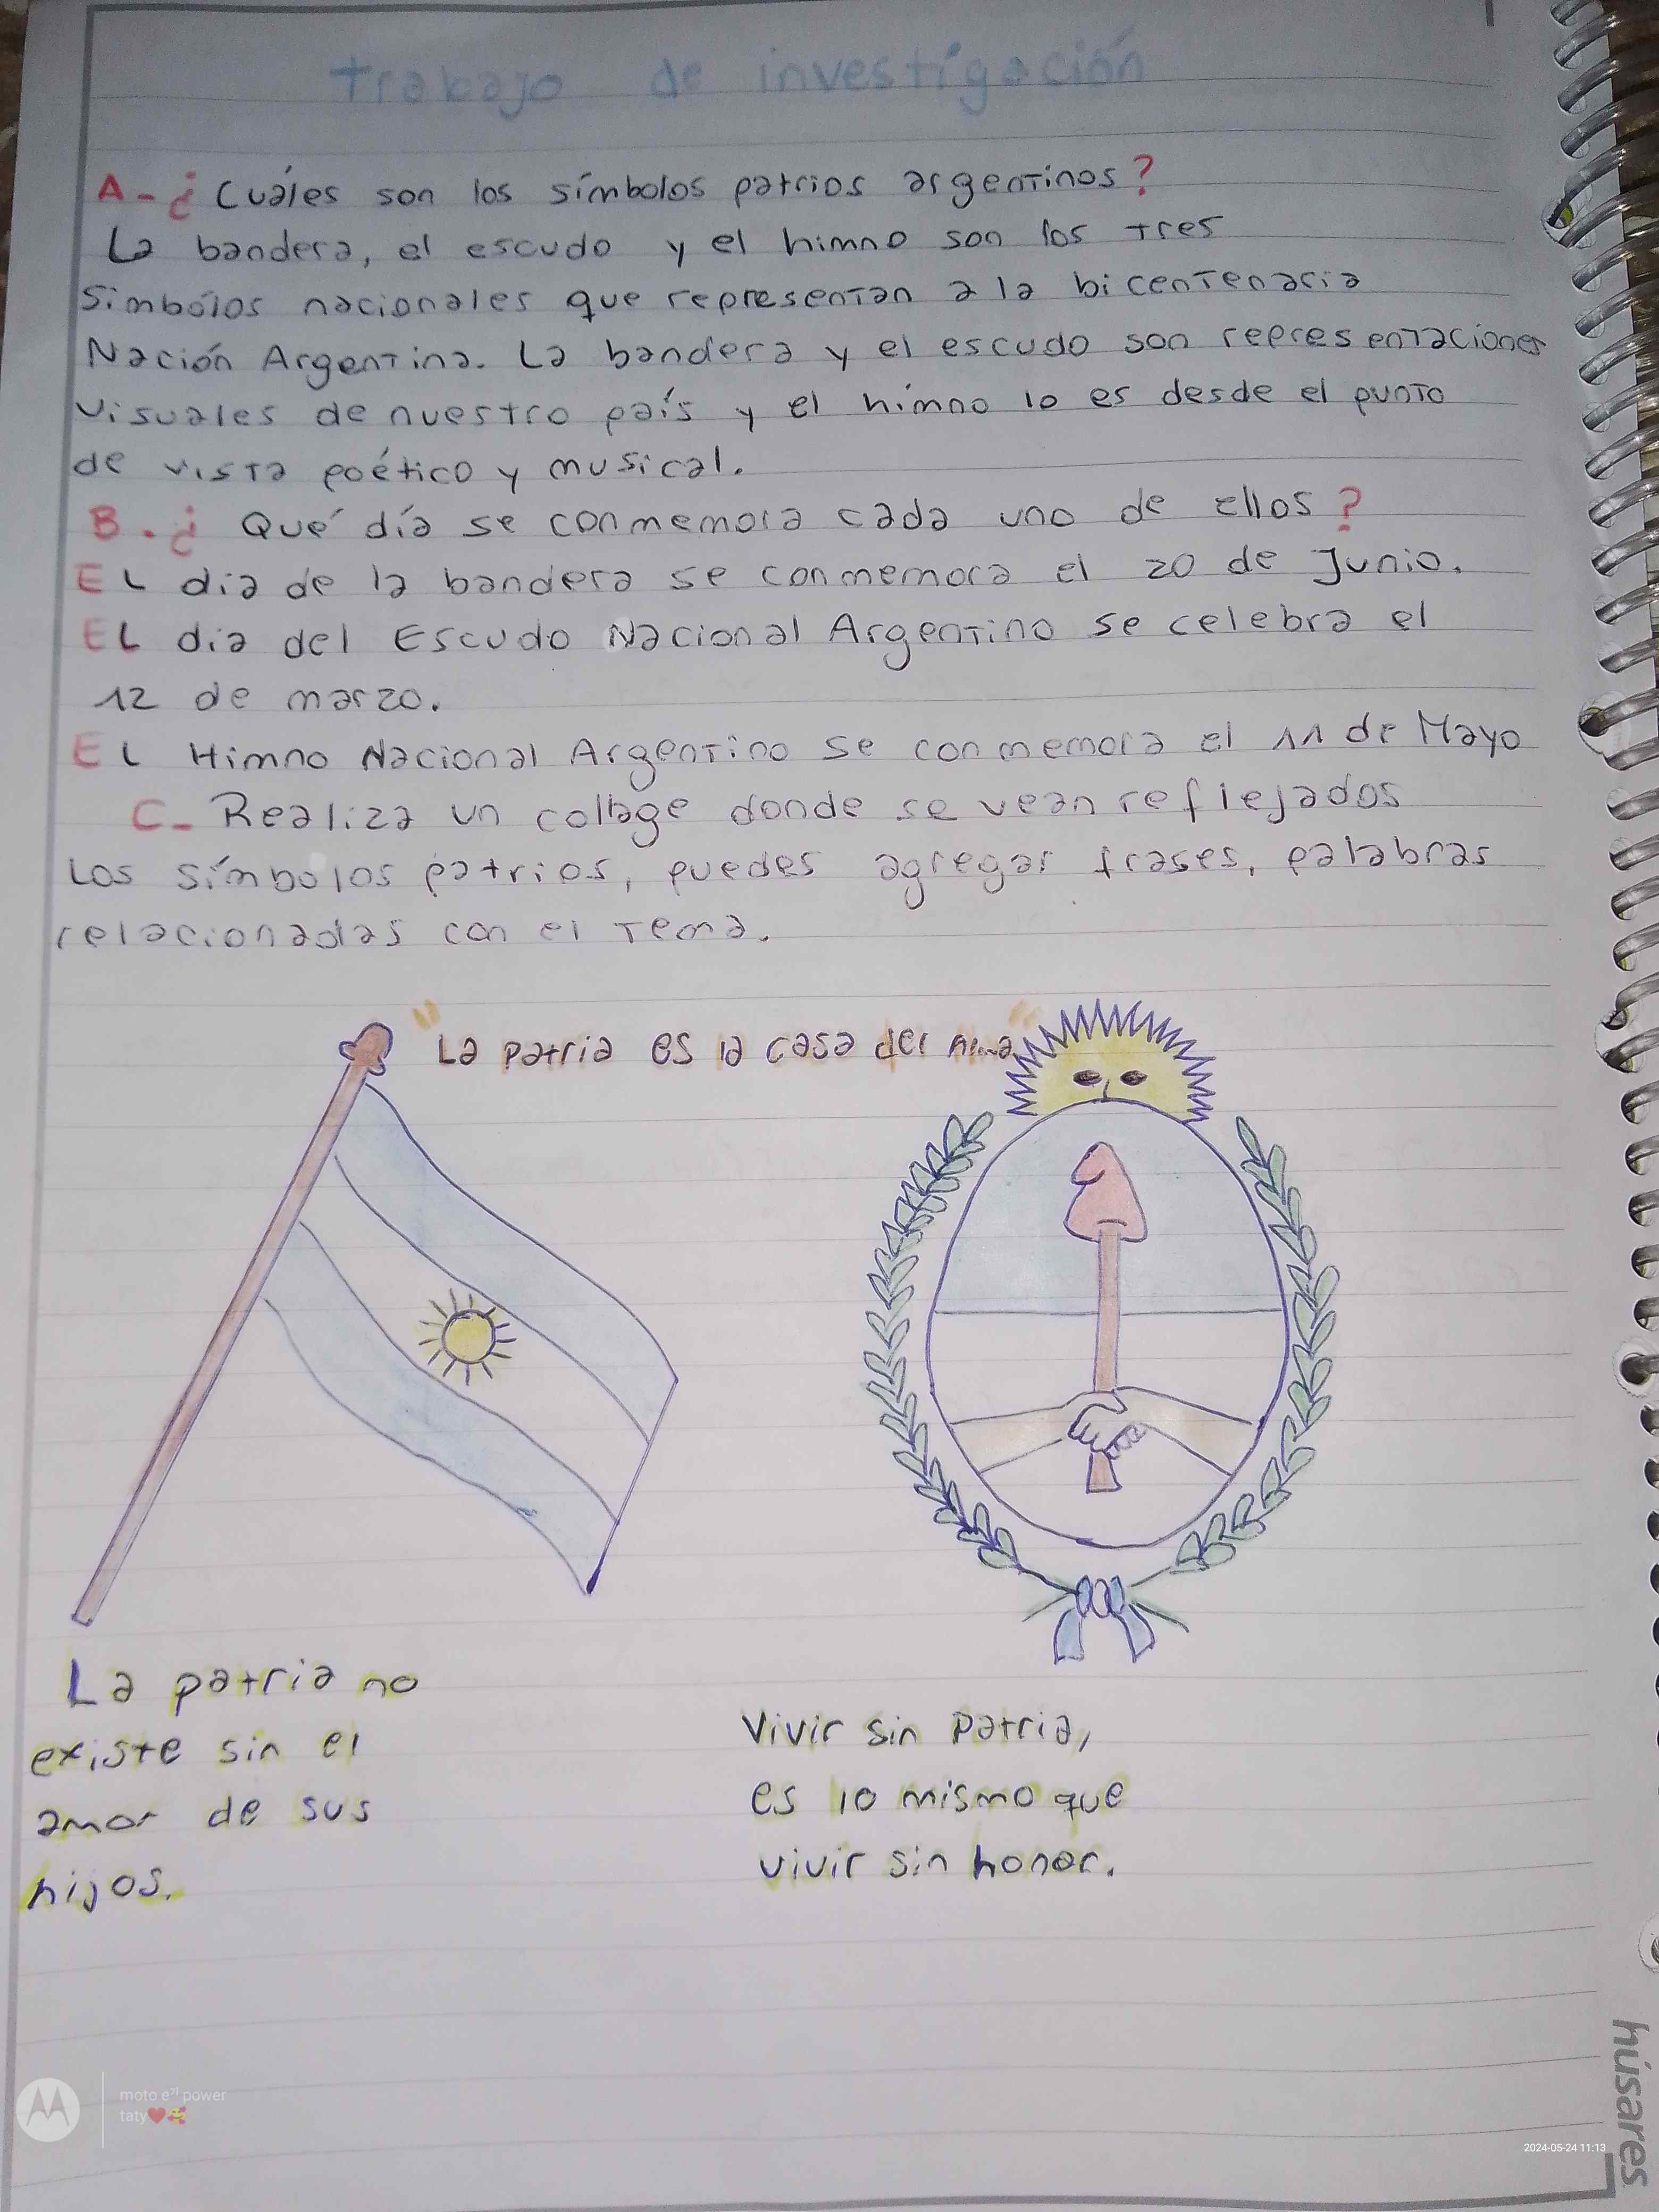 trabajo de investigación
A-¿Cuáles son los símbolos patrios argentinos?
La bandera, el escudo y el himno son los tres
Simbólos nacionales que representan a la bicentenaria
Nación Argentina. La bandera y el escudo son representaciones
visuales de nuestro país y el himno lo es desde el punto
de vista poético y musical.
B.¿Qué día se conmemora cada uno de ellos?
EL dia de la bandera se conmemora el 20 de Junio.
EL dia del Escudo Nacional Argentino se celebra el
12 de marzo.
EL Himno Nacional Argentino se conmemora el 11 de Mayo
C- Realiza un collage donde se vean reflejados
Los símbolos patrios, puedes agregar frases, palabras
relacionadas con el tema.
"La patria es la casa del Alma"
La patria no
existe sin el
amor de sus
hijos.
Vivir sin Patria,
es lo mismo que
vivir sin honor.
húsares
moto e⁷ⁱ power
taty❤️🥰
2024-05-24 11:13